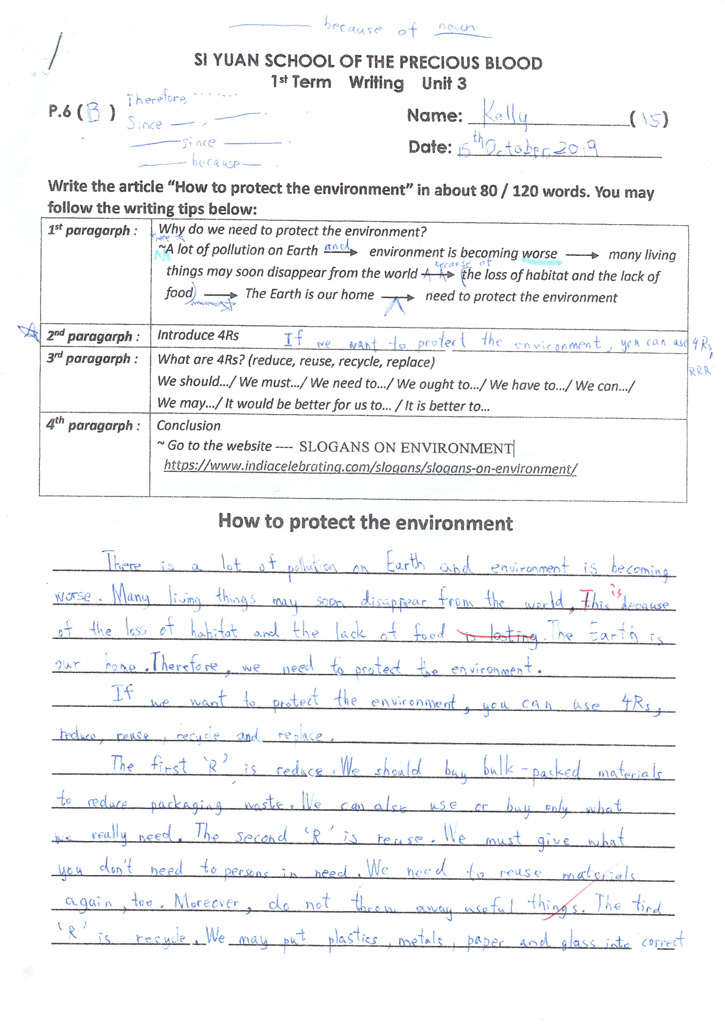 because of noun
SI YUAN SCHOOL OF THE PRECIOUS BLOOD
1st Term Writing Unit 3
P.6 ( B )
Therefore, ......
Since — , —
— since —
— because —
Name: Kelly ( 15 )
Date: 15th October, 2019
Write the article "How to protect the environment" in about 80 / 120 words. You may
follow the writing tips below:
1st paragarph :
Why do we need to protect the environment?
~A lot of pollution on Earth and → environment is becoming worse → many living
things may soon disappear from the world because of → (the loss of habitat and the lack of
food) → The Earth is our home → need to protect the environment
2nd paragarph :
Introduce 4Rs If we want to protect the environment, you can use 4Rs,
RRR
3rd paragarph :
What are 4Rs? (reduce, reuse, recycle, replace)
We should.../ We must.../ We need to.../ We ought to.../ We have to.../ We can.../
We may.../ It would be better for us to... / It is better to...
4th paragarph :
Conclusion
~ Go to the website ---- SLOGANS ON ENVIRONMENT
https://www.indiacelebrating.com/slogans/slogans-on-environment/
How to protect the environment
There is a lot of pollution on Earth and environment is becoming
worse. Many living things may soon disappear from the world. This is because
of the loss of habitat and the lack of food. The Earth is
our home. Therefore, we need to protect the environment.
If we want to protect the environment, you can use 4Rs,
reduce, reuse, recycle and replace.
The first 'R' is reduce. We should buy bulk-packed materials
to reduce packaging waste. We can also use or buy only what
we really need. The second 'R' is reuse. We must give what
you don't need to persons in need. We need to reuse materials
again, too. Moreover, do not throw away useful things. The tird
'R' is recycle. We may put plastics, metals, paper and glass into correct